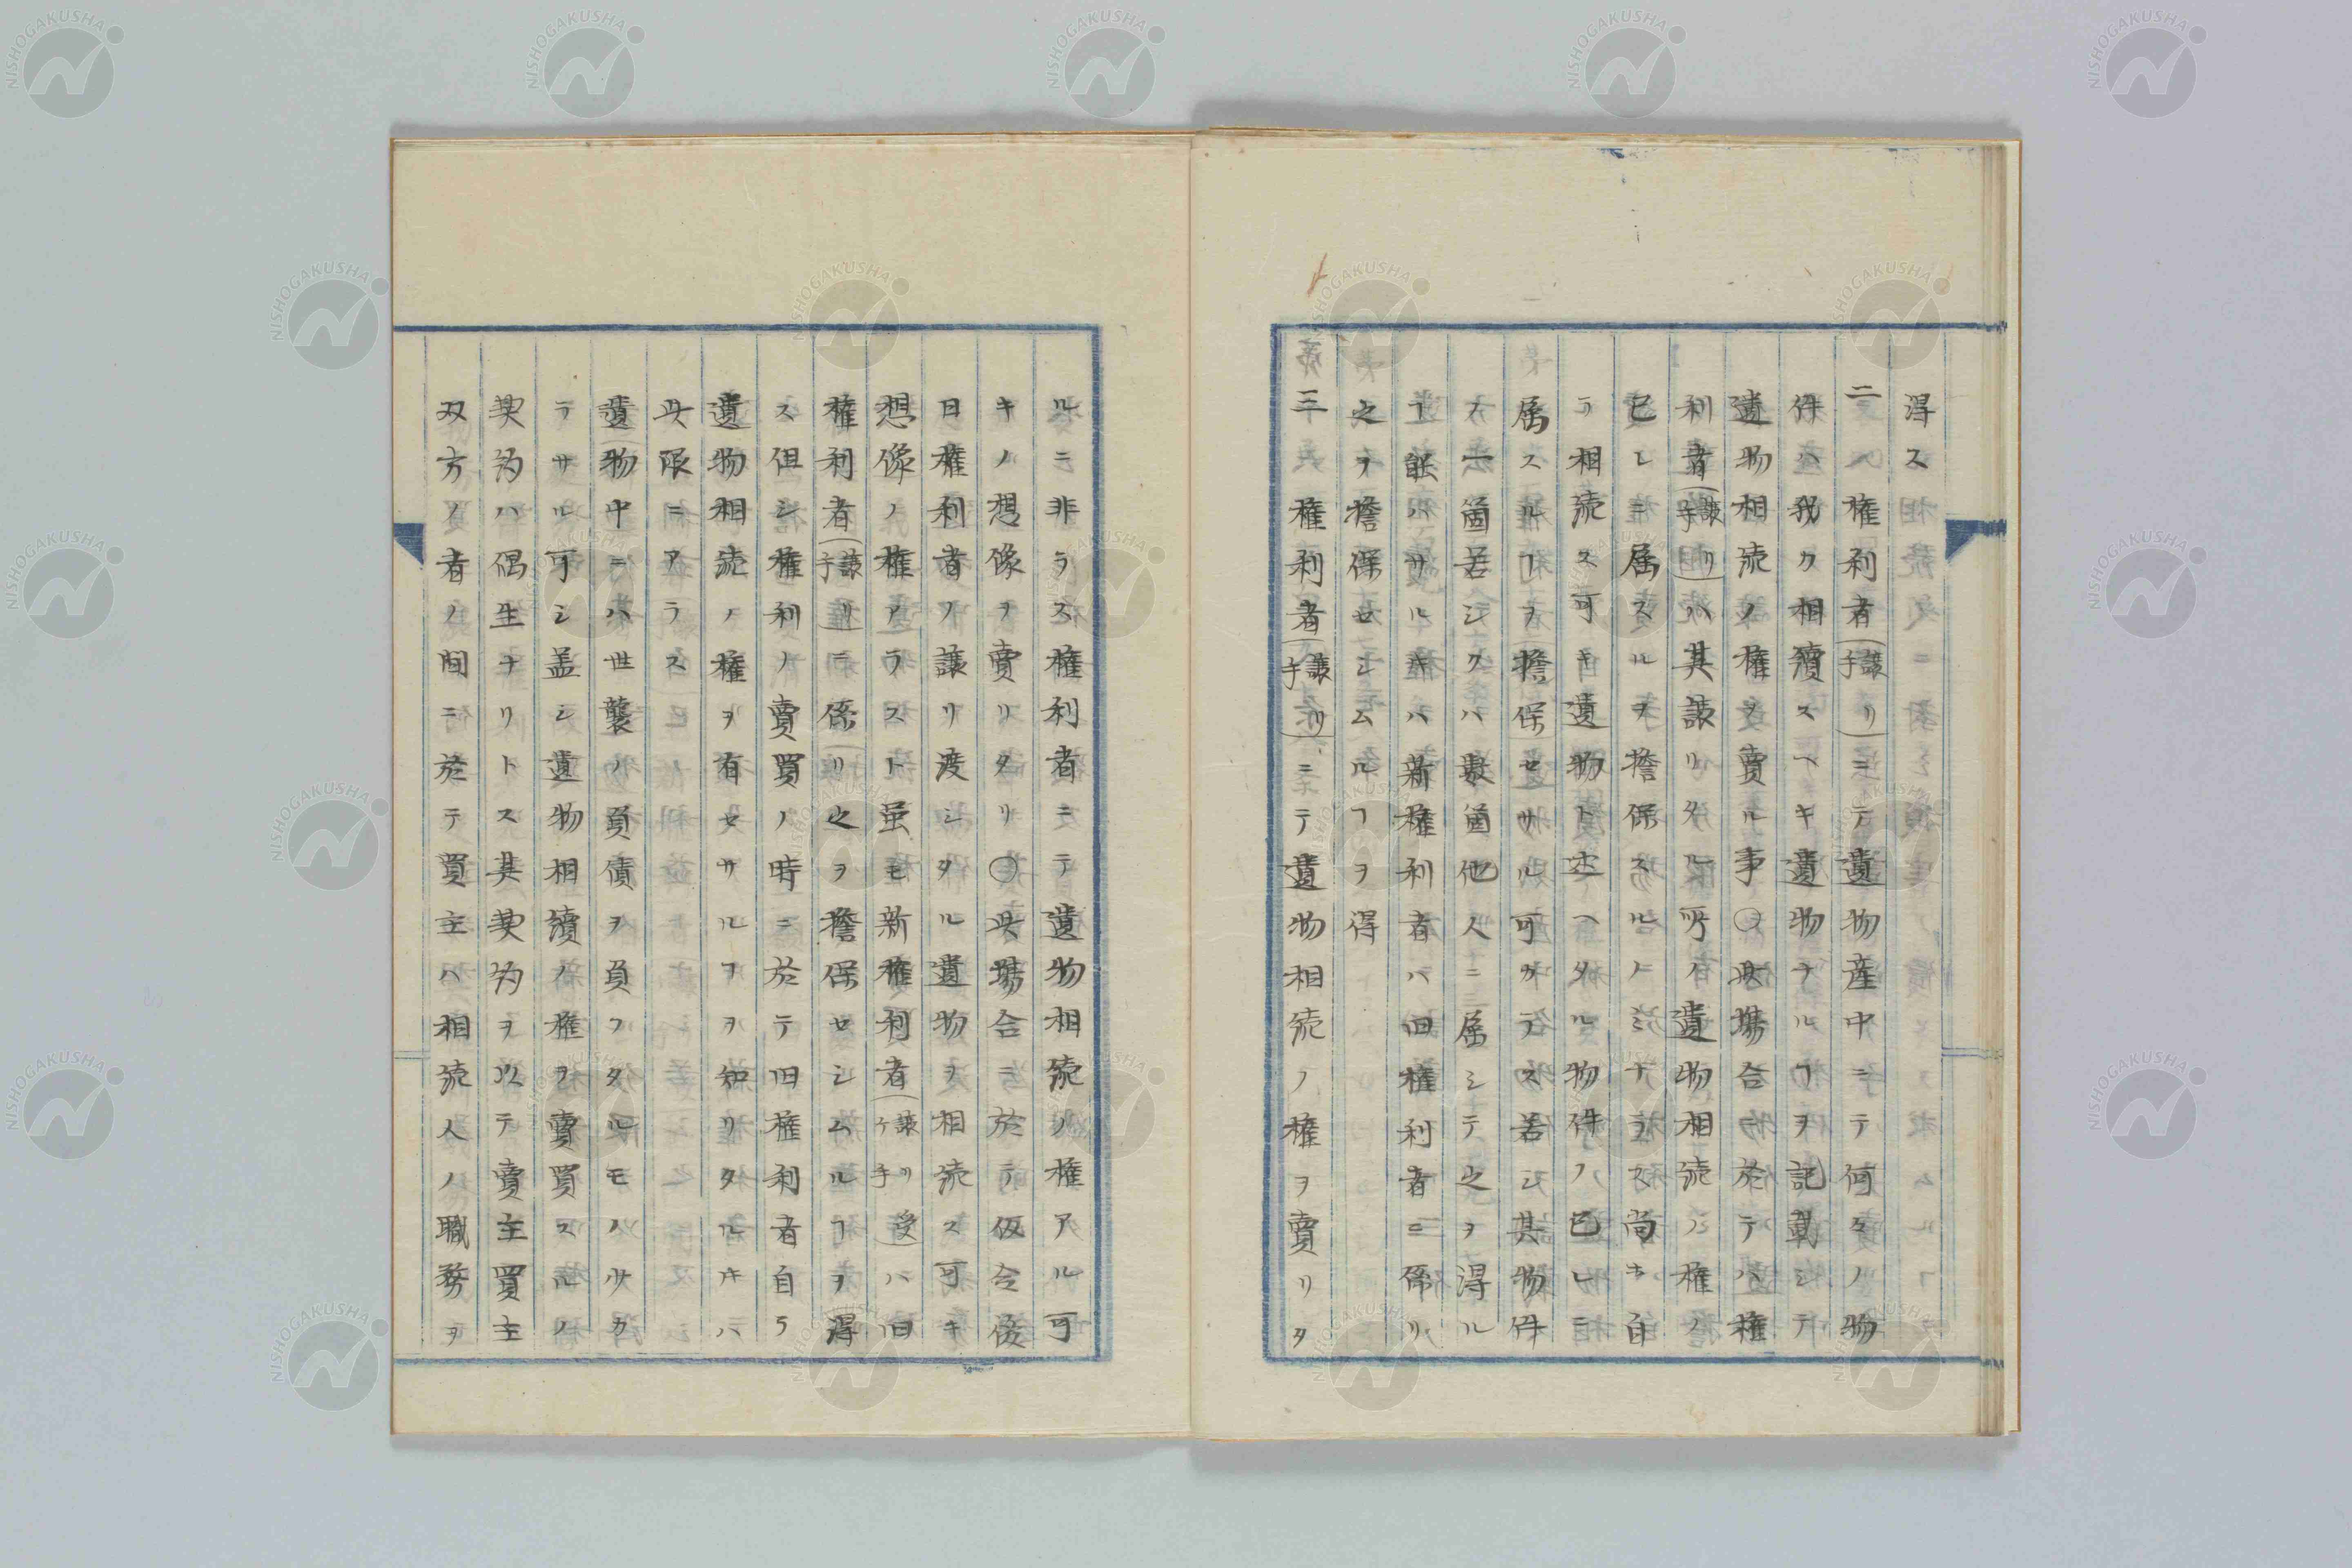 得ス
二 権利者(譲リ手)ニテ遺物産中ニテ何々ノ物
件ハ我ク相續スヘキ遺物ナルヿヲ記載シテ
遺物相続ノ権ヲ賣ル事〇此場合ニ於テハ権
利者(譲リ手)ハ其譲リタル所ノ遺物相続ノ権ノ
已レニ属スルヲ擔保スルノミナラス尚ホ自
ラ相続ス可キ遺物ト述ヘタル物件ノ已レニ
属スルヿヲ擔保セサル可カラス若シ其物件
ノ一箇若シクハ數箇他人ニ属シテ之ヲ得ル
ヿ能ハサルキハ新権利者ハ旧権利者ニ係リ
之ヲ擔保セシムルヿヲ得
三 権利者(譲リ手)ニテ遺物相続ノ権ヲ賣リタ
ルニ非ラス権利者ニテ遺物相続ノ権アル可
キノ想像ヲ賣リタリ〇此場合ニ於テ仮令後
日権利者ノ譲リ渡シタル遺物ヲ相続ス可キ
想像ノ権アラスト虽モ新権利者(譲リ受ケ手)ハ旧
権利者(譲リ手)ニ係リ之ヲ擔保セシムルヿヲ得
ス但シ権利ノ賣買ノ時ニ於テ旧権利者自ラ
遺物相続ノ権ヲ有セサルヿヲ知リタルキハ
此限ニアラス
遺物中ニハ世襲ノ負債ヲ負フタルモノ少カ
ラサル可シ盖シ遺物相續ノ権ヲ賣買スルノ
契約ハ偶生ナリトス其契約ヲ以テ賣主買主
双方ノ者ノ間ニ於テ買主ハ相続人ノ職務ヲ